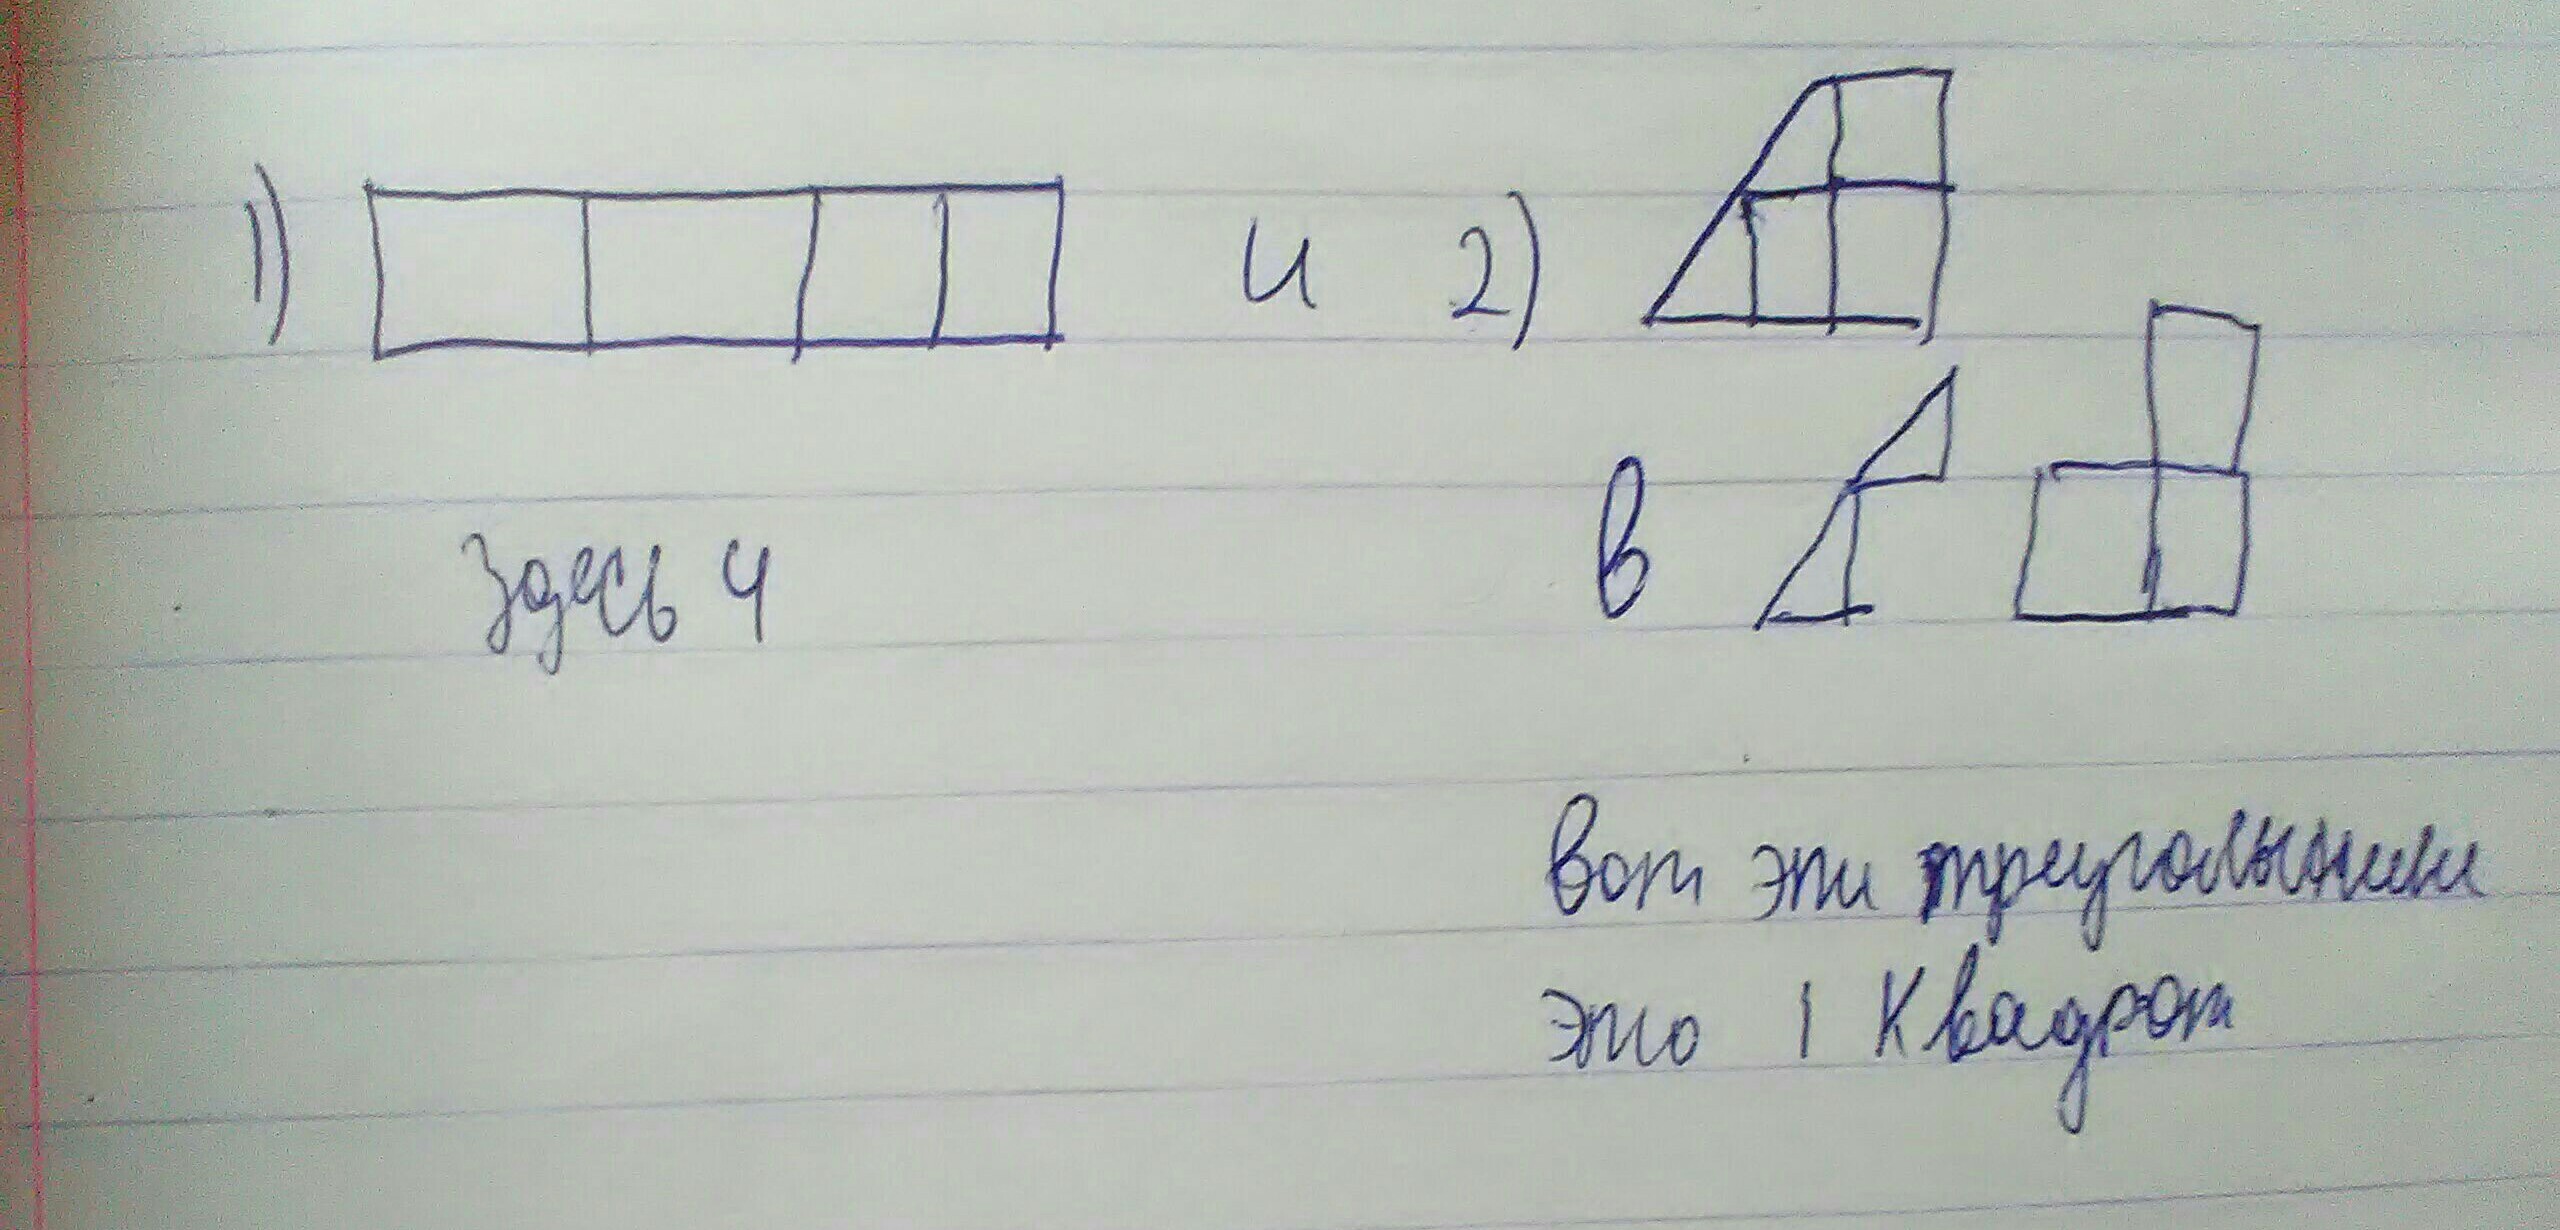 1) и 2)
Здесь 4
В
Вот эти треугольники
это 1 Квадрат